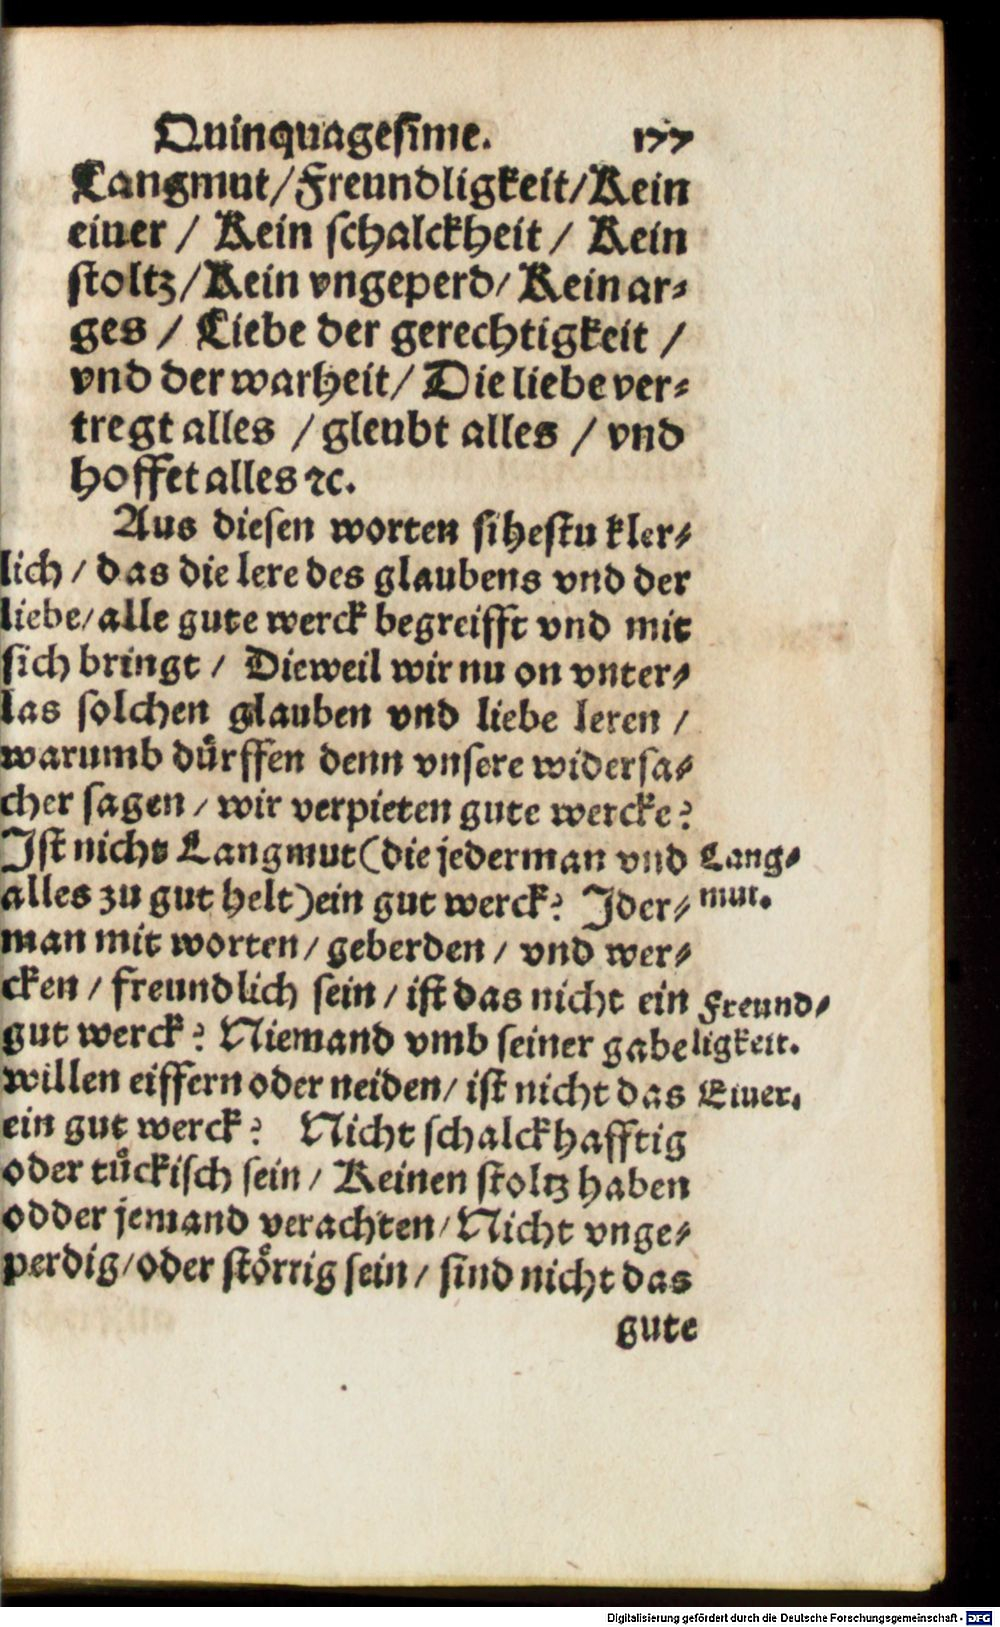 Quinquagesime. 177
Langmut/Freundligkeit/Kein
eiuer / Kein schalckheit / Kein
stoltz/Kein vngeperd/ Kein ar⸗
ges / Liebe der gerechtigkeit /
vnd der warheit/ Die liebe ver⸗
tregt alles / gleubt alles / vnd
hoffet alles ꝛc.
Aus diesen worten sihestu kler⸗
lich / das die lere des glaubens vnd der
liebe/ alle gute werck begreifft vnd mit
sich bringt / Dieweil wir nu on vnter⸗
las solchen glauben vnd liebe leren /
warumb dürffen denn vnsere widersa⸗
cher sagen / wir verpieten gute wercke?
Ist nicht Langmut (die jederman vnd Lang⸗
alles zu gut helt) ein gut werck? Jder⸗ mut.
man mit worten / geberden / vnd wer⸗
cken / freundlich sein / ist das nicht ein Freund⸗
gut werck? Niemand vmb seiner gabe ligkeit.
willen eiffern oder neiden/ ist nicht das Eiuer.
ein gut werck? Nicht schalckhafftig
oder tückisch sein / Keinen stoltz haben
odder jemand verachten/ Nicht vnge⸗
perdig/oder störrig sein / sind nicht das
gute
Digitalisierung gefördert durch die Deutsche Forschungsgemeinschaft - DFG